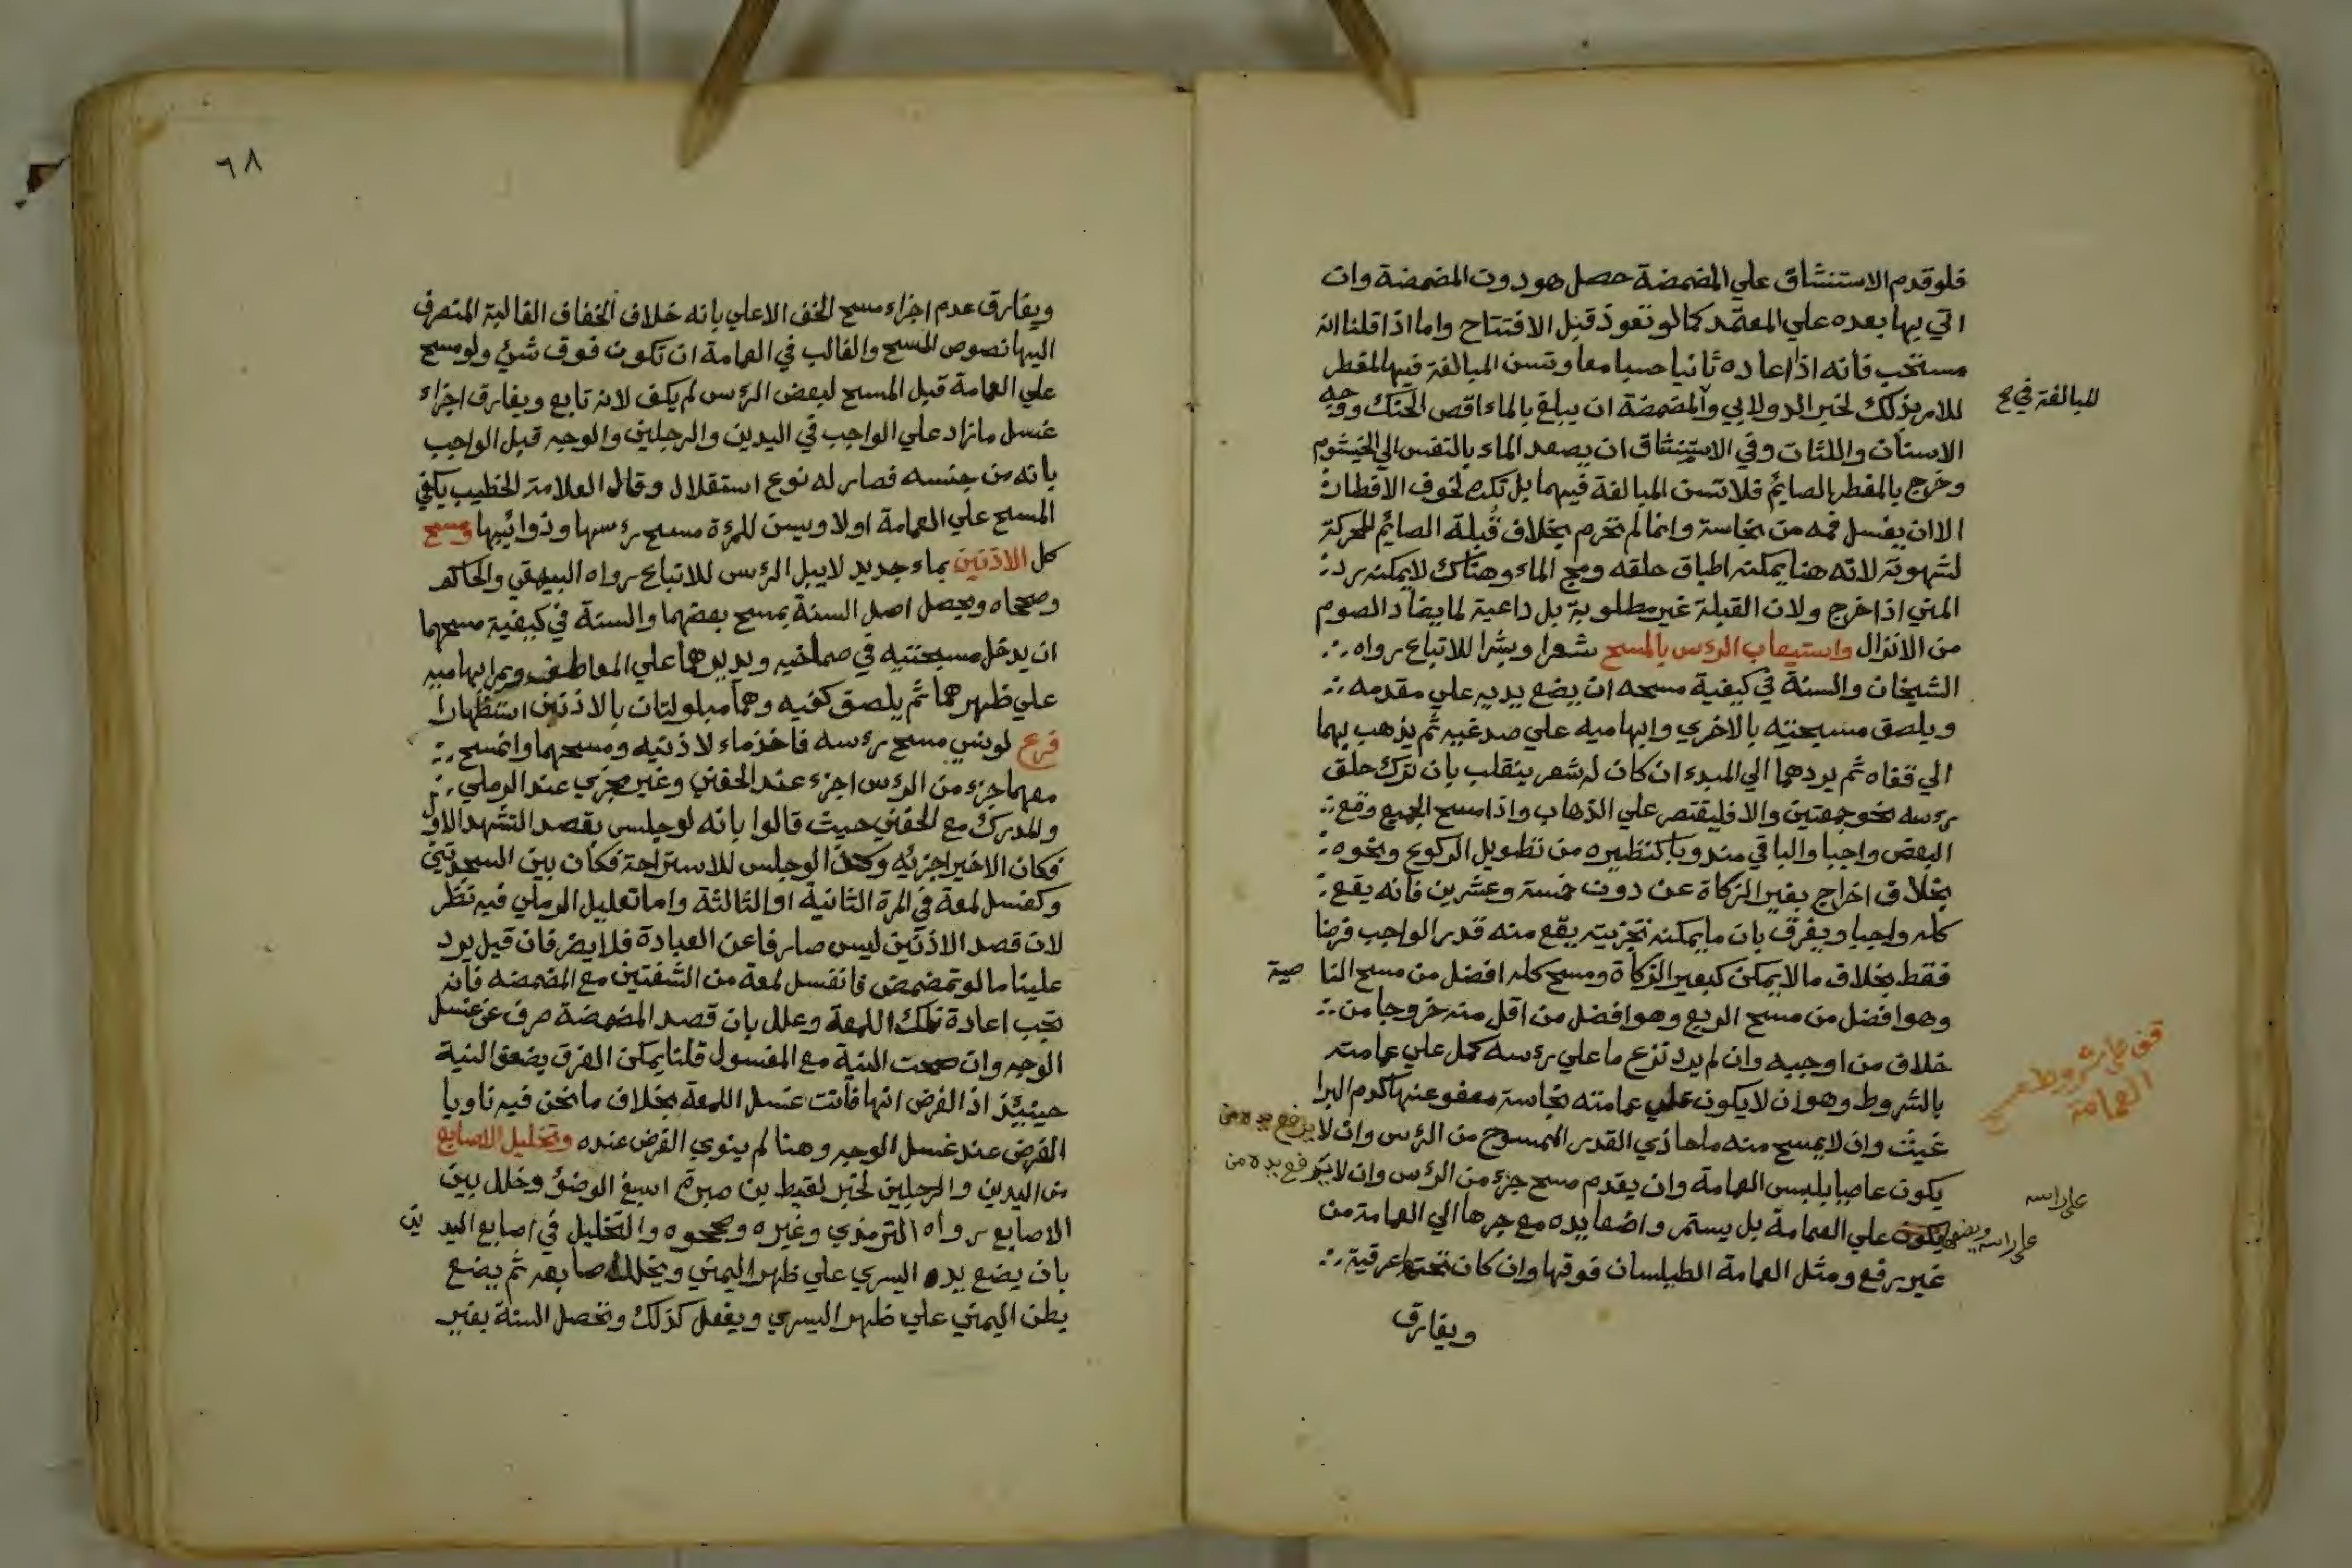 فلو قدم الاستنشاق علي المضمضة حصل هو دون المضمضة وان
اتي بها بعده علي المعتمد كما لو تعوذ قبل الافتتاح واما اذا قلنا انه
مستحب فانه اذا اعاده ثانيا حسبا معا وتسن المبالغة فيها لمفطر
للامر بذلك لخبر الدولابي والمضمضة ان يبلغ بالماء اقصي الحنك ووجه
المبالغة في ع
الاسنان واللثات وفي الاستنشاق ان يصعد الماء بالنفس الي الخيشوم
وخرج بالمفطر الصايم فلا تسن المبالغة فيهما بل تكره لخوف الافطار
الا ان يغسل فمه من نجاسة وانما لم تحرم بخلاف قُبلة الصايم المحركة
لشهوته لانه هنا يمكنه اطباق حلقه ومج الماء وهناك لا يمكنه رد
المني اذا خرج ولان القبلة غير مطلوبة بل داعية لما يضاد الصوم
من الانزال واستيعاب الرءس بالمسح شعرا وبشرا للاتباع رواه
الشيخان والسنة في كيفية مسحه ان يضع يديه علي مقدمه
ويلصق مسبحتيه بالاخري وابهاميه علي صدغيه ثم يذهب بهما
الي قفاه ثم يردهما الي المبدء ان كان له شعر ينقلب بان ترك حلق
رءسه نحو جمعتين والا فليقتصر علي الذهاب واذا مسح الجميع وقع
البعض واجبا والباقي مندوبا كنظيره من تطويل الركوع ونحوه
بخلاف اخراج بعير الزكاة عن دون خمسة وعشرين فانه يقع
كله واجبا ويفرق بان ما يمكنه تجزيته يقع منه قدر الواجب فرضا
فقط بخلاف ما لا يمكن كبعير الزكاة ومسح كله افضل من مسح الناصية
وهو افضل من مسح الربع وهو افضل من اقل منه خروجا من
خلاف من اوجبه وان لم يرد نزع ما علي رءسه كمل علي عمامته
قف علي شروط مسح
العمامة
بالشروط وهو ان لا يكون علي عمامته نجاسة معفو عنها كدم البرا
غيث وان لا يمسح منه ما حاذي القدر الممسوح من الرءس وان لا يرفع يده من
يكون عاصيا بلبس العمامة وان يقدم مسح جزء من الرءس وان لا يرفع يده من
علي راسه
علي راسه ويضعها
يكون علي العمامة بل يستمر واضعا يده مع جرها الي العمامة من
غير رفع ومثل العمامة الطيلسان فوقها وان كان تحتها عرقية
ويفارق
٦٨
ويفارق عدم اجزاء مسح الخف الاعلي بانه خلاف الخفاف الغالبة المنصرف
اليها نصوص المسح والغالب في العمامة ان تكون فوق شئ ولو مسح
علي العمامة قبل المسح لبعض الرءس لم يكف لانه تابع ويفارق اجزاء
غسل ما زاد علي الواجب في اليدين والرجلين والوجه قبل الواجب
بانه من جنسه فصار له نوع استقلال وقال العلامة الخطيب يكفي
المسح علي العمامة اولا ويسن للمرءة مسح رءسها وذوائبها ومسح
كل الاذنين بماء جديد لا ببل الرءس للاتباع رواه البيهقي والحاكم
وصححاه ويحصل اصل السنة بمسح بعضهما والسنة في كيفية مسحهما
ان يدخل مسبحتيه في صماخيه ويديرهما علي المعاطف ويمر ابهاميه
علي ظهرهما ثم يلصق كفيه وهما مبلولتان بالاذنين استظهارا
فرع لو نسي مسح رءسه فاخذ ماء لاذنيه ومسحهما وانمسح
معهما جزء من الرءس اجزء عند الحفني وغير مجزي عند الرملي
والمدرك مع الحفني حيث قالوا بانه لو جلس بقصد التشهد الاول
فكان الاخير اجزئه وكذا لو جلس للاستراحة فكان بين السجدتين
وكغسل لمعة في المرة الثانية او الثالثة واما تعليل الرملي فيه نظر
لان قصد الاذنين ليس صارفا عن العبادة فلا يضر فان قيل يرد
علينا ما لو تمضمض فانغسل لمعة من الشفتين مع المضمضه فانه
تجب اعادة تلك اللمعة وعلل بان قصد المضمضة صرف عن غسل
الوجه وان صحت النية مع المغسول قلنا يمكن الفرق بضعف النية
حينيئذ اذ الفرض انها فاتت غسل اللمعة بخلاف ما نحن فيه ناويا
الفرض عند غسل الوجه وهنا لم ينوي الفرض عنده وتخليل الاصابع
من اليدين والرجلين لخبر لقيط بن صبرة اسبغ الوضؤ وخلل بين
الاصابع رواه الترمذي وغيره وصححوه والتخليل في اصابع اليدين
بان يضع يده اليسري علي ظهر اليمني ويخلل اصابعه ثم يضع
بطن اليمني علي ظهر اليسري ويفعل كذلك وتحصل السنة بغير